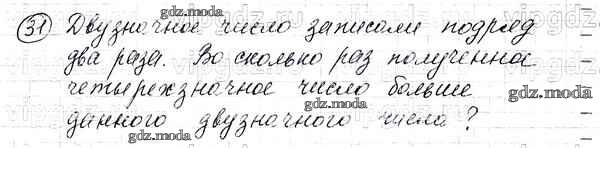 31 Двузначное число записали подряд
два раза. Во сколько раз полученное
четырехзначное число больше
данного двузначного числа?
gdz.moda
gdz.moda
gdz.moda
gdz.moda